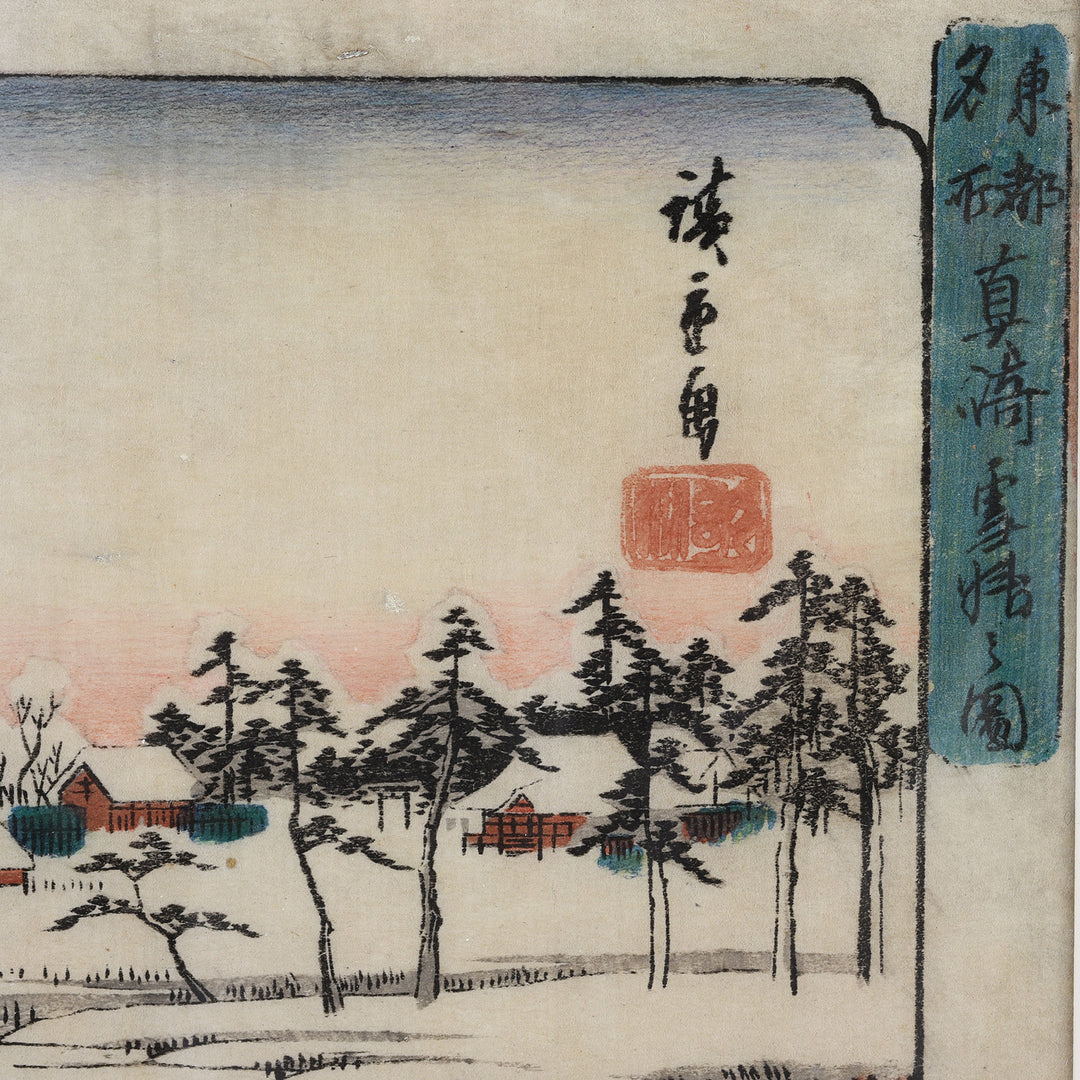 東都
名所
真﨑雪晴之圖
廣重画